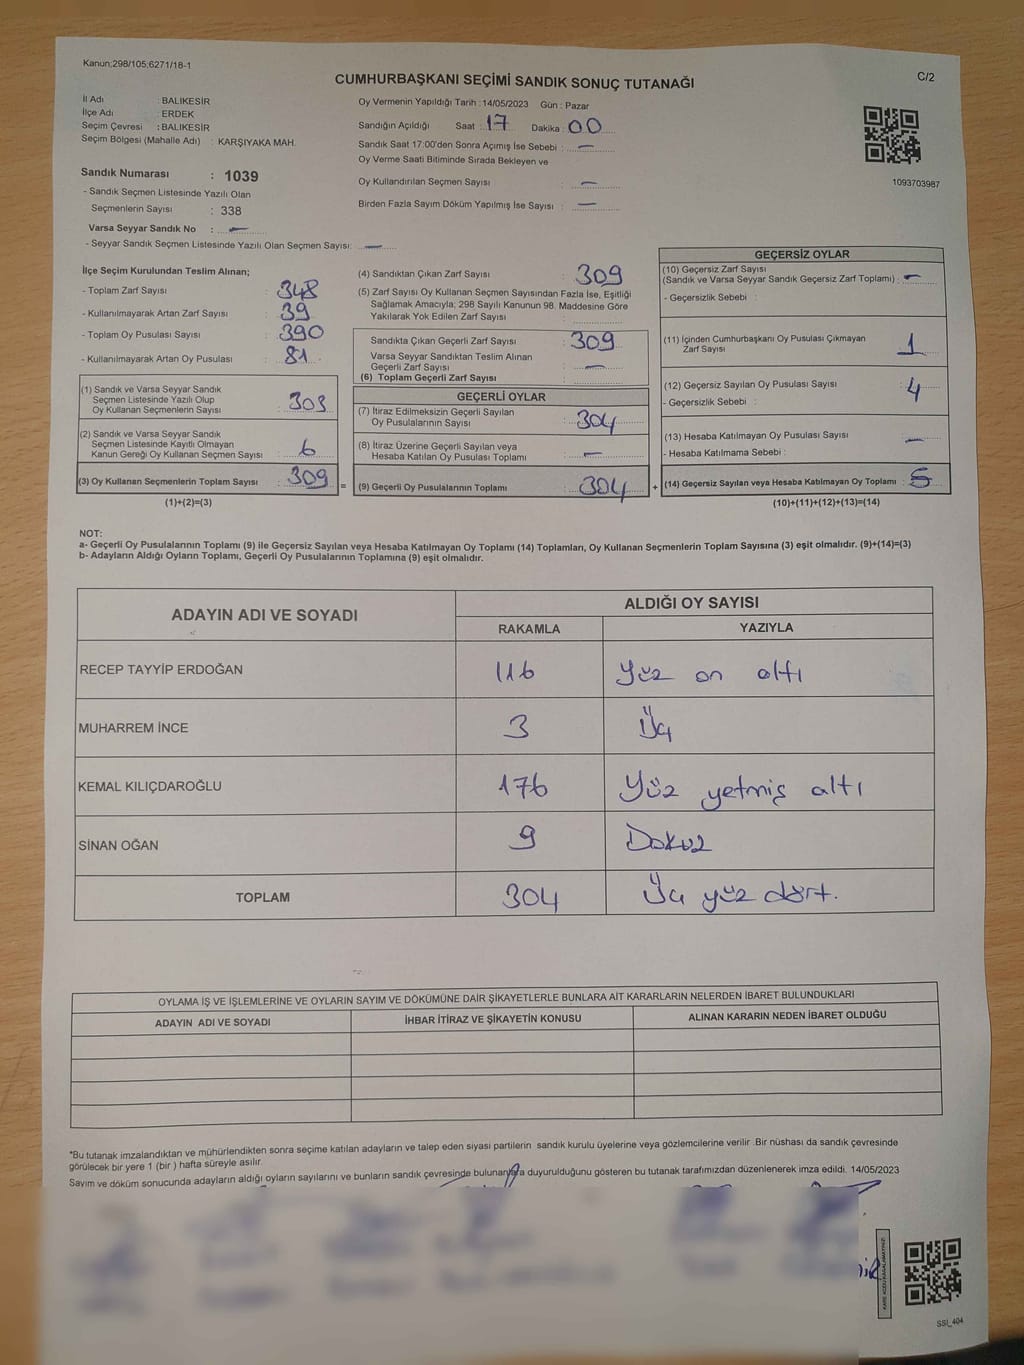 Kanun;298/105;6271/18-1
C/2
CUMHURBAŞKANI SEÇİMİ SANDIK SONUÇ TUTANAĞI
İl Adı : BALIKESİR
İlçe Adı : ERDEK
Seçim Çevresi : BALIKESİR
Seçim Bölgesi (Mahalle Adı) : KARŞIYAKA MAH.
Sandık Numarası : 1039
- Sandık Seçmen Listesinde Yazılı Olan
Seçmenlerin Sayısı : 338
Varsa Seyyar Sandık No : —
- Seyyar Sandık Seçmen Listesinde Yazılı Olan Seçmen Sayısı: —
Oy Vermenin Yapıldığı Tarih : 14/05/2023 Gün : Pazar
Sandığın Açıldığı Saat : 17 Dakika : 00
Sandık Saat 17:00'den Sonra Açımış İse Sebebi : —
Oy Verme Saati Bitiminde Sırada Bekleyen ve
Oy Kullandırılan Seçmen Sayısı : —
Birden Fazla Sayım Döküm Yapılmış İse Sayısı : —
1093703987
İlçe Seçim Kurulundan Teslim Alınan;
- Toplam Zarf Sayısı : 348
- Kullanılmayarak Artan Zarf Sayısı : 39
- Toplam Oy Pusulası Sayısı : 390
- Kullanılmayarak Artan Oy Pusulası : 81
(1) Sandık ve Varsa Seyyar Sandık
Seçmen Listesinde Yazılı Olup
Oy Kullanan Seçmenlerin Sayısı : 303
(2) Sandık ve Varsa Seyyar Sandık
Seçmen Listesinde Kayıtlı Olmayan
Kanun Gereği Oy Kullanan Seçmen Sayısı : 6
(3) Oy Kullanan Seçmenlerin Toplam Sayısı : 309
(1)+(2)=(3)
(4) Sandıktan Çıkan Zarf Sayısı : 309
(5) Zarf Sayısı Oy Kullanan Seçmen Sayısından Fazla İse, Eşitliği
Sağlamak Amacıyla; 298 Sayılı Kanunun 98. Maddesine Göre
Yakılarak Yok Edilen Zarf Sayısı :
Sandıkta Çıkan Geçerli Zarf Sayısı : 309
Varsa Seyyar Sandıktan Teslim Alınan
Geçerli Zarf Sayısı : —
(6) Toplam Geçerli Zarf Sayısı :
GEÇERLİ OYLAR
(7) İtiraz Edilmeksizin Geçerli Sayılan
Oy Pusulalarının Sayısı : 304
(8) İtiraz Üzerine Geçerli Sayılan veya
Hesaba Katılan Oy Pusulası Toplamı : —
= (9) Geçerli Oy Pusulalarının Toplamı : 304 +
GEÇERSİZ OYLAR
(10) Geçersiz Zarf Sayısı
(Sandık ve Varsa Seyyar Sandık Geçersiz Zarf Toplamı) : —
- Geçersizlik Sebebi :
(11) İçinden Cumhurbaşkanı Oy Pusulası Çıkmayan
Zarf Sayısı : 1
(12) Geçersiz Sayılan Oy Pusulası Sayısı : 4
- Geçersizlik Sebebi :
(13) Hesaba Katılmayan Oy Pusulası Sayısı : —
- Hesaba Katılmama Sebebi :
(14) Geçersiz Sayılan veya Hesaba Katılmayan Oy Toplamı : 5
(10)+(11)+(12)+(13)=(14)
NOT:
a- Geçerli Oy Pusulalarının Toplamı (9) ile Geçersiz Sayılan veya Hesaba Katılmayan Oy Toplamı (14) Toplamları, Oy Kullanan Seçmenlerin Toplam Sayısına (3) eşit olmalıdır. (9)+(14)=(3)
b- Adayların Aldığı Oyların Toplamı, Geçerli Oy Pusulalarının Toplamına (9) eşit olmalıdır.
ADAYIN ADI VE SOYADI
ALDIĞI OY SAYISI
RAKAMLA YAZIYLA
RECEP TAYYİP ERDOĞAN 116 Yüz on altı
MUHARREM İNCE 3 Üç
KEMAL KILIÇDAROĞLU 176 Yüz yetmiş altı
SİNAN OĞAN 9 Dokuz
TOPLAM 304 Üç yüz dört.
OYLAMA İŞ VE İŞLEMLERİNE VE OYLARIN SAYIM VE DÖKÜMÜNE DAİR ŞİKAYETLERLE BUNLARA AİT KARARLARIN NELERDEN İBARET BULUNDUKLARI
ADAYIN ADI VE SOYADI İHBAR İTİRAZ VE ŞİKAYETİN KONUSU ALINAN KARARIN NEDEN İBARET OLDUĞU
*Bu tutanak imzalandıktan ve mühürlendikten sonra seçime katılan adayların ve talep eden siyasi partilerin sandık kurulu üyelerine veya gözlemcilerine verilir .Bir nüshası da sandık çevresinde
görülecek bir yere 1 (bir ) hafta süreyle asılır.
Sayım ve döküm sonucunda adayların aldığı oyların sayılarını ve bunların sandık çevresinde bulunanlara duyurulduğunu gösteren bu tutanak tarafımızdan düzenlenerek imza edildi. 14/05/2023
SSI_404